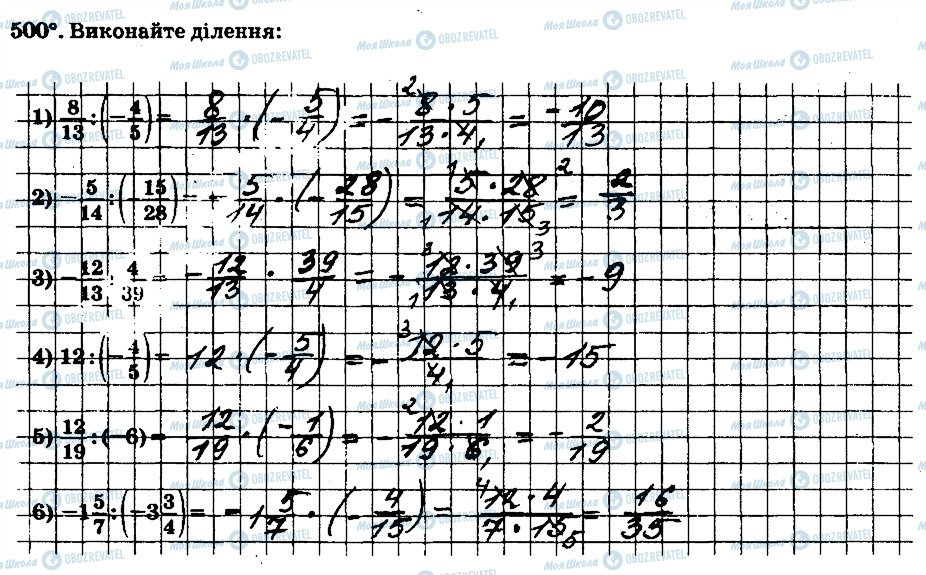 500°. Виконайте ділення:
1) 8/13 : (−4/5) = 8/13 · (−5/4) = − 8·5/13·4 = −10/13
2) −5/14 : (−15/28) = −5/14 · (−28/15) = 5·28/14·15 = 2/3
3) −12/13 : 4/39 = −12/13 · 39/4 = − 12·39/13·4 = −9
4) 12 : (−4/5) = 12 · (−5/4) = − 12·5/4 = −15
5) 12/19 : (−6) = 12/19 · (−1/6) = − 12·1/19·6 = −2/19
6) −1 5/7 : (−3 3/4) = −1 5/7 · (−4/15) = 12·4/7·15 = 16/35